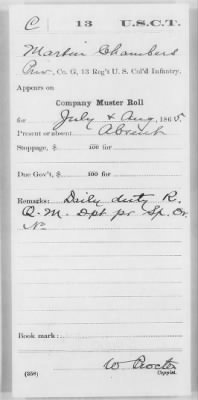 C 13 U.S.C.T.
Martin Chambers
Priv., Co. G, 13 Reg't U. S. Col'd Infantry.
Appears on
Company Muster Roll
for July & Aug, 1865.
Present or absent Absent
Stoppage, $ 100 for
Due Gov't, $ 100 for
Remarks: Daily duty R.
Q. M. Dpt pr Sp. Or.
No
Book mark:
W Procter
(358) Copyist.